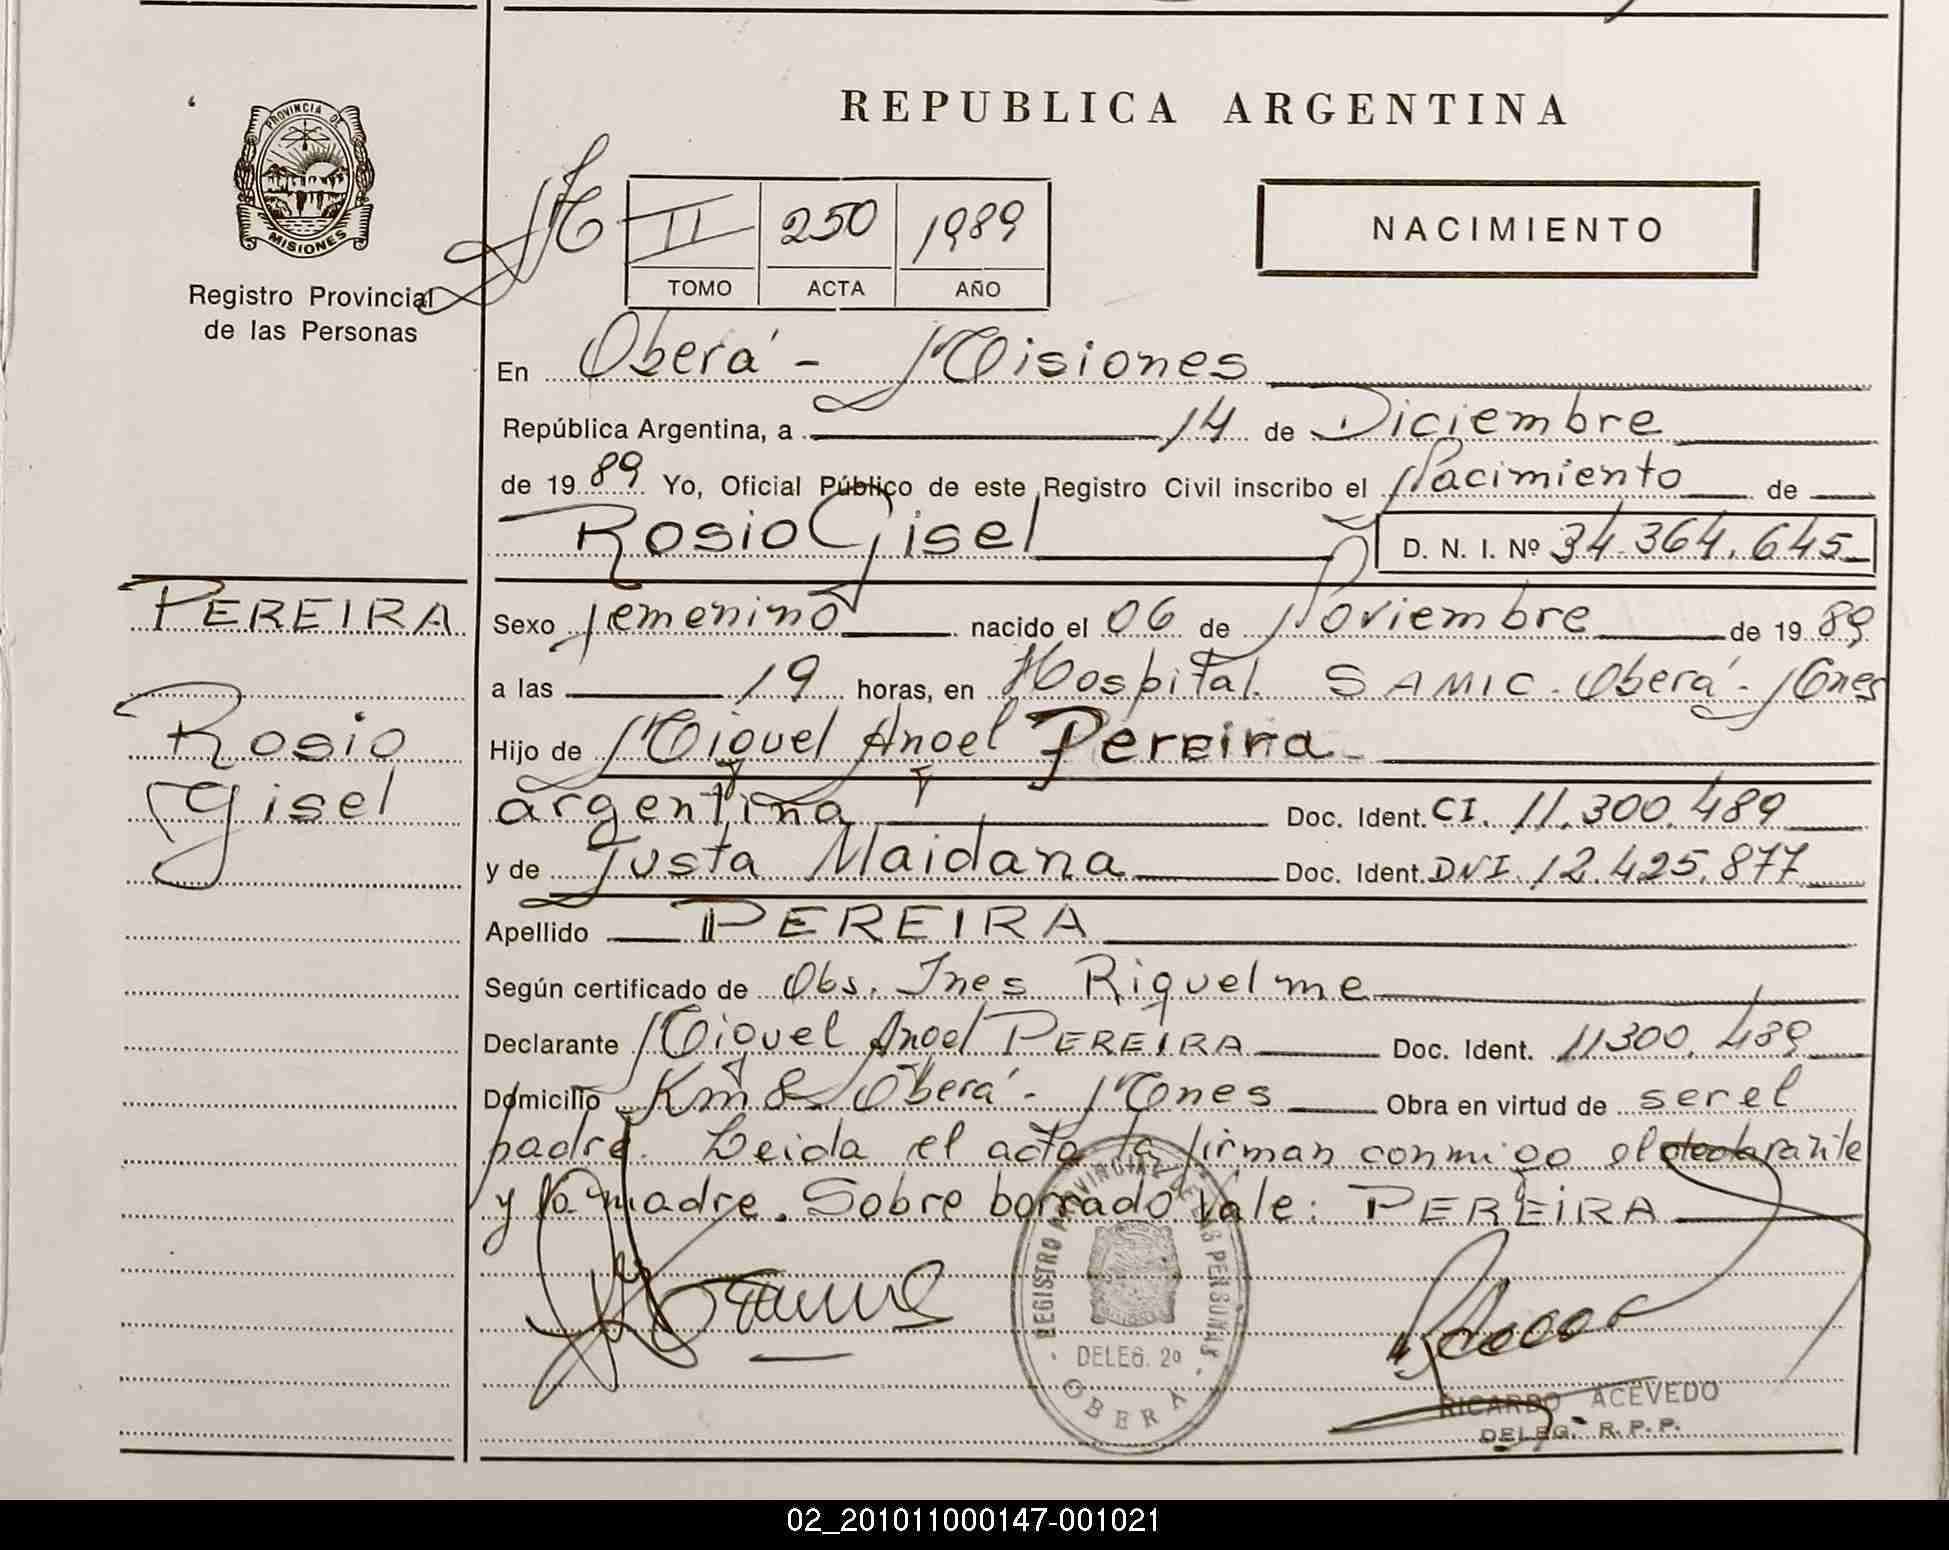 REPUBLICA ARGENTINA
PROVINCIA DE
MISIONES
Registro Provincial
de las Personas
II 250 1989
TOMO ACTA AÑO
NACIMIENTO
En Oberá - Misiones
República Argentina, a 14 de Diciembre
de 1989 Yo, Oficial Público de este Registro Civil inscribo el Nacimiento de
Rosio Gisel D. N. I. Nº 34.364.645
PEREIRA
Rosio
Gisel
Sexo femenino nacido el 06 de Noviembre de 1989
a las 19 horas, en Hospital SAMIC. Oberá - Mnes
Hijo de Miguel Angel Pereira
argentina Doc. Ident. CI. 11.300.489
y de Justa Maidana Doc. Ident. DNI. 12.425.877
Apellido PEREIRA
Según certificado de Obs. Ines Riquelme
Declarante Miguel Angel PEREIRA Doc. Ident. 11300.489
Domicilio Km 8 Oberá - Mnes Obra en virtud de ser el
padre. Leida el acta la firman conmigo el declarante
y la madre. Sobre borrado vale: PEREIRA
REGISTRO PROVINCIAL DE LAS PERSONAS
DELEG. 2º
OBERA
RICARDO ACEVEDO
DELEG. R.P.P.
02_201011000147-001021